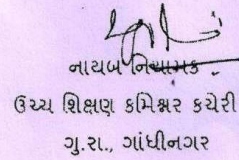 નાયબ નિયામક
ઉચ્ચ શિક્ષણ કમિશ્નર કચેરી
ગુ.રા., ગાંધીનગર